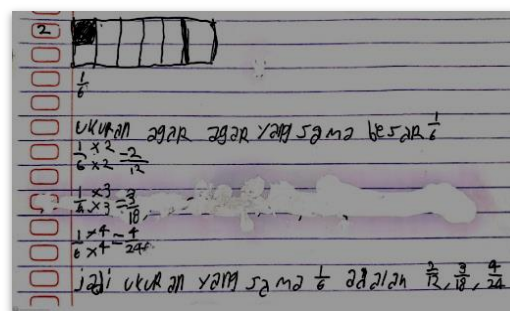 2
1/6
ukuran agar agar yang sama besar 1/6
1/6 × 2/2 = 2/12
1/6 × 3/3 = 3/18
1/6 × 4/4 = 4/24
jadi ukuran yang sama 1/6 adalah 2/12, 3/18, 4/24